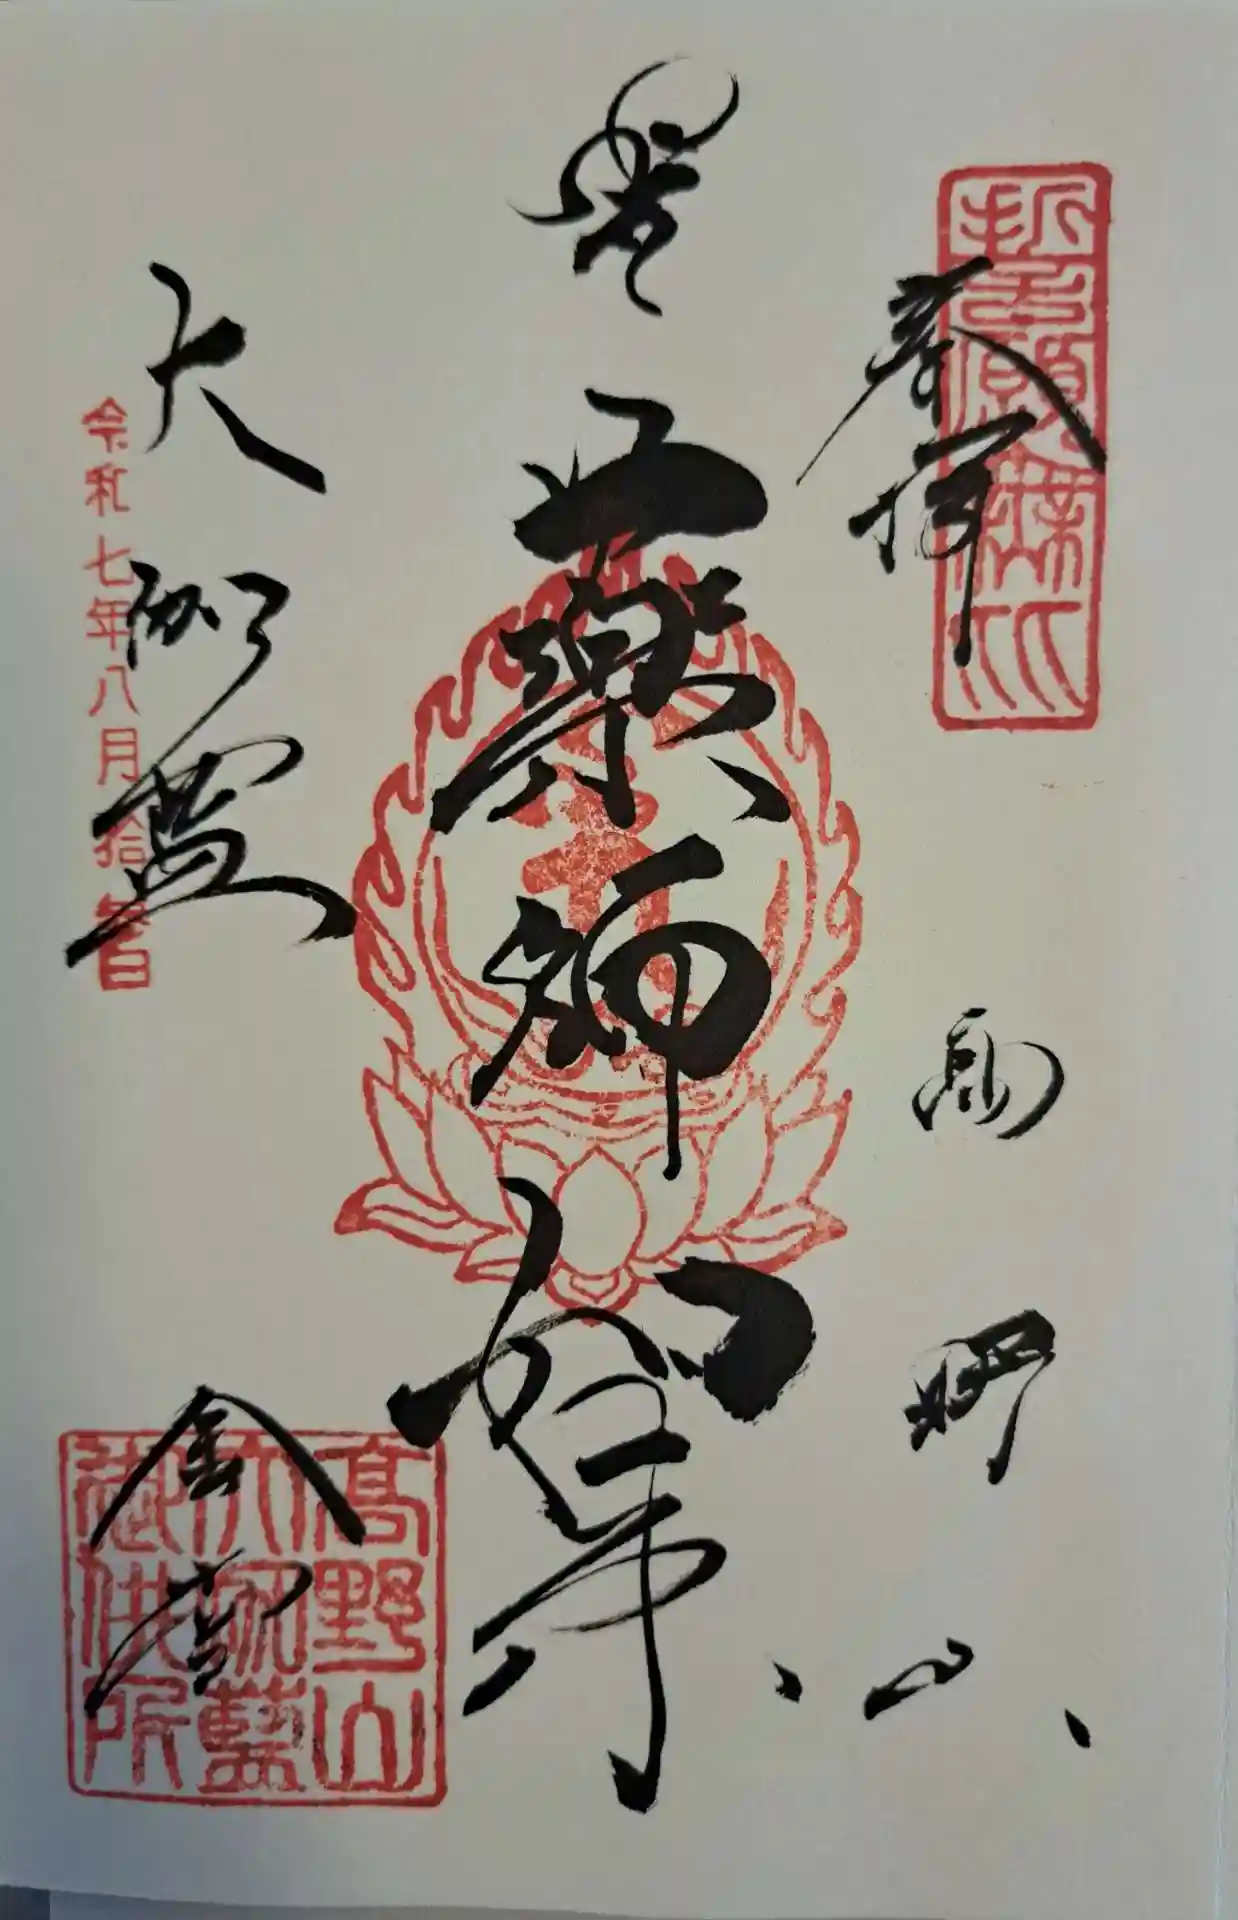 奉拝
高野山
薬師如来
大伽藍
金堂
令和七年八月拾
日
高野山
大伽藍
御供所